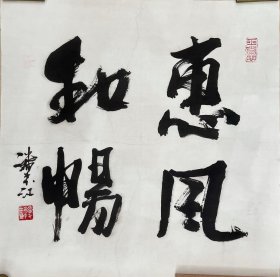 惠风
和畅